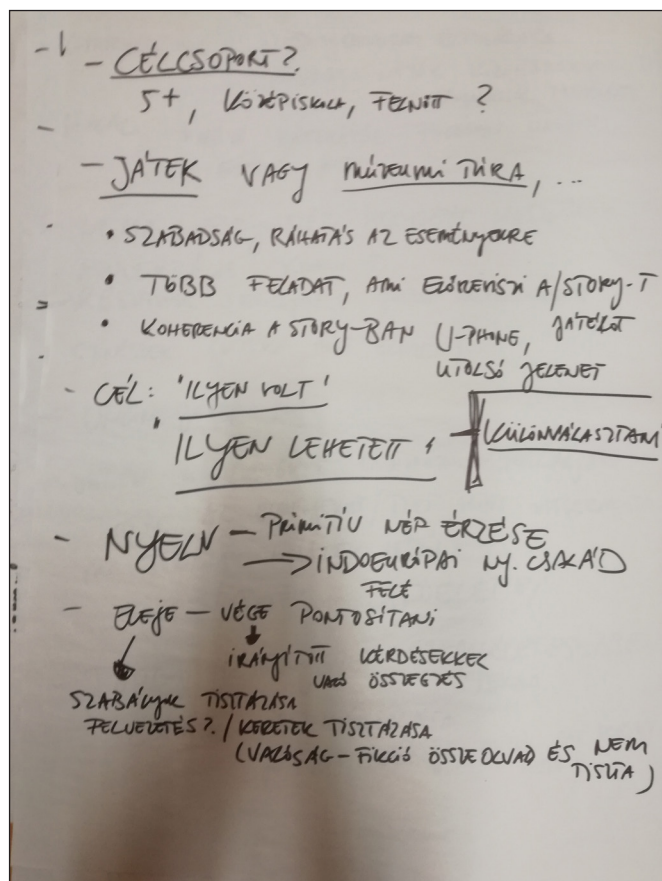 - CÉLCSOPORT?
5+, KÖZÉPISKOLA, FELNŐTT ?
- JÁTÉK VAGY MÚZEUMI TÚRA, ...
• SZABADSÁG, RÁHATÁS AZ ESEMÉNYEKRE
• TÖBB FELADAT, AMI ELŐREVISZI A/STORY-T
• KOHERENCIA A STORY-BAN U-PHONE, JÁTÉKOT
UTOLSÓ JELENET
- CÉL: 'ILYEN VOLT'
'ILYEN LEHETETT' KÜLÖNVÁLASZTANI
- NYELV - PRIMITÍV NÉP ÉRZÉSE
→ INDOEURÓPAI NY. CSALÁD
FELÉ
- ELEJE - VÉGE PONTOSÍTANI
IRÁNYÍTOTT KÉRDÉSEKKEL
VALÓ ÖSSZEGZÉS
SZABÁLYOK TISZTÁZÁSA
FELVEZETÉS? / KERETEK TISZTÁZÁSA
(VALÓSÁG-FIKCIÓ ÖSSZEOLVAD ÉS NEM
TISZTA)